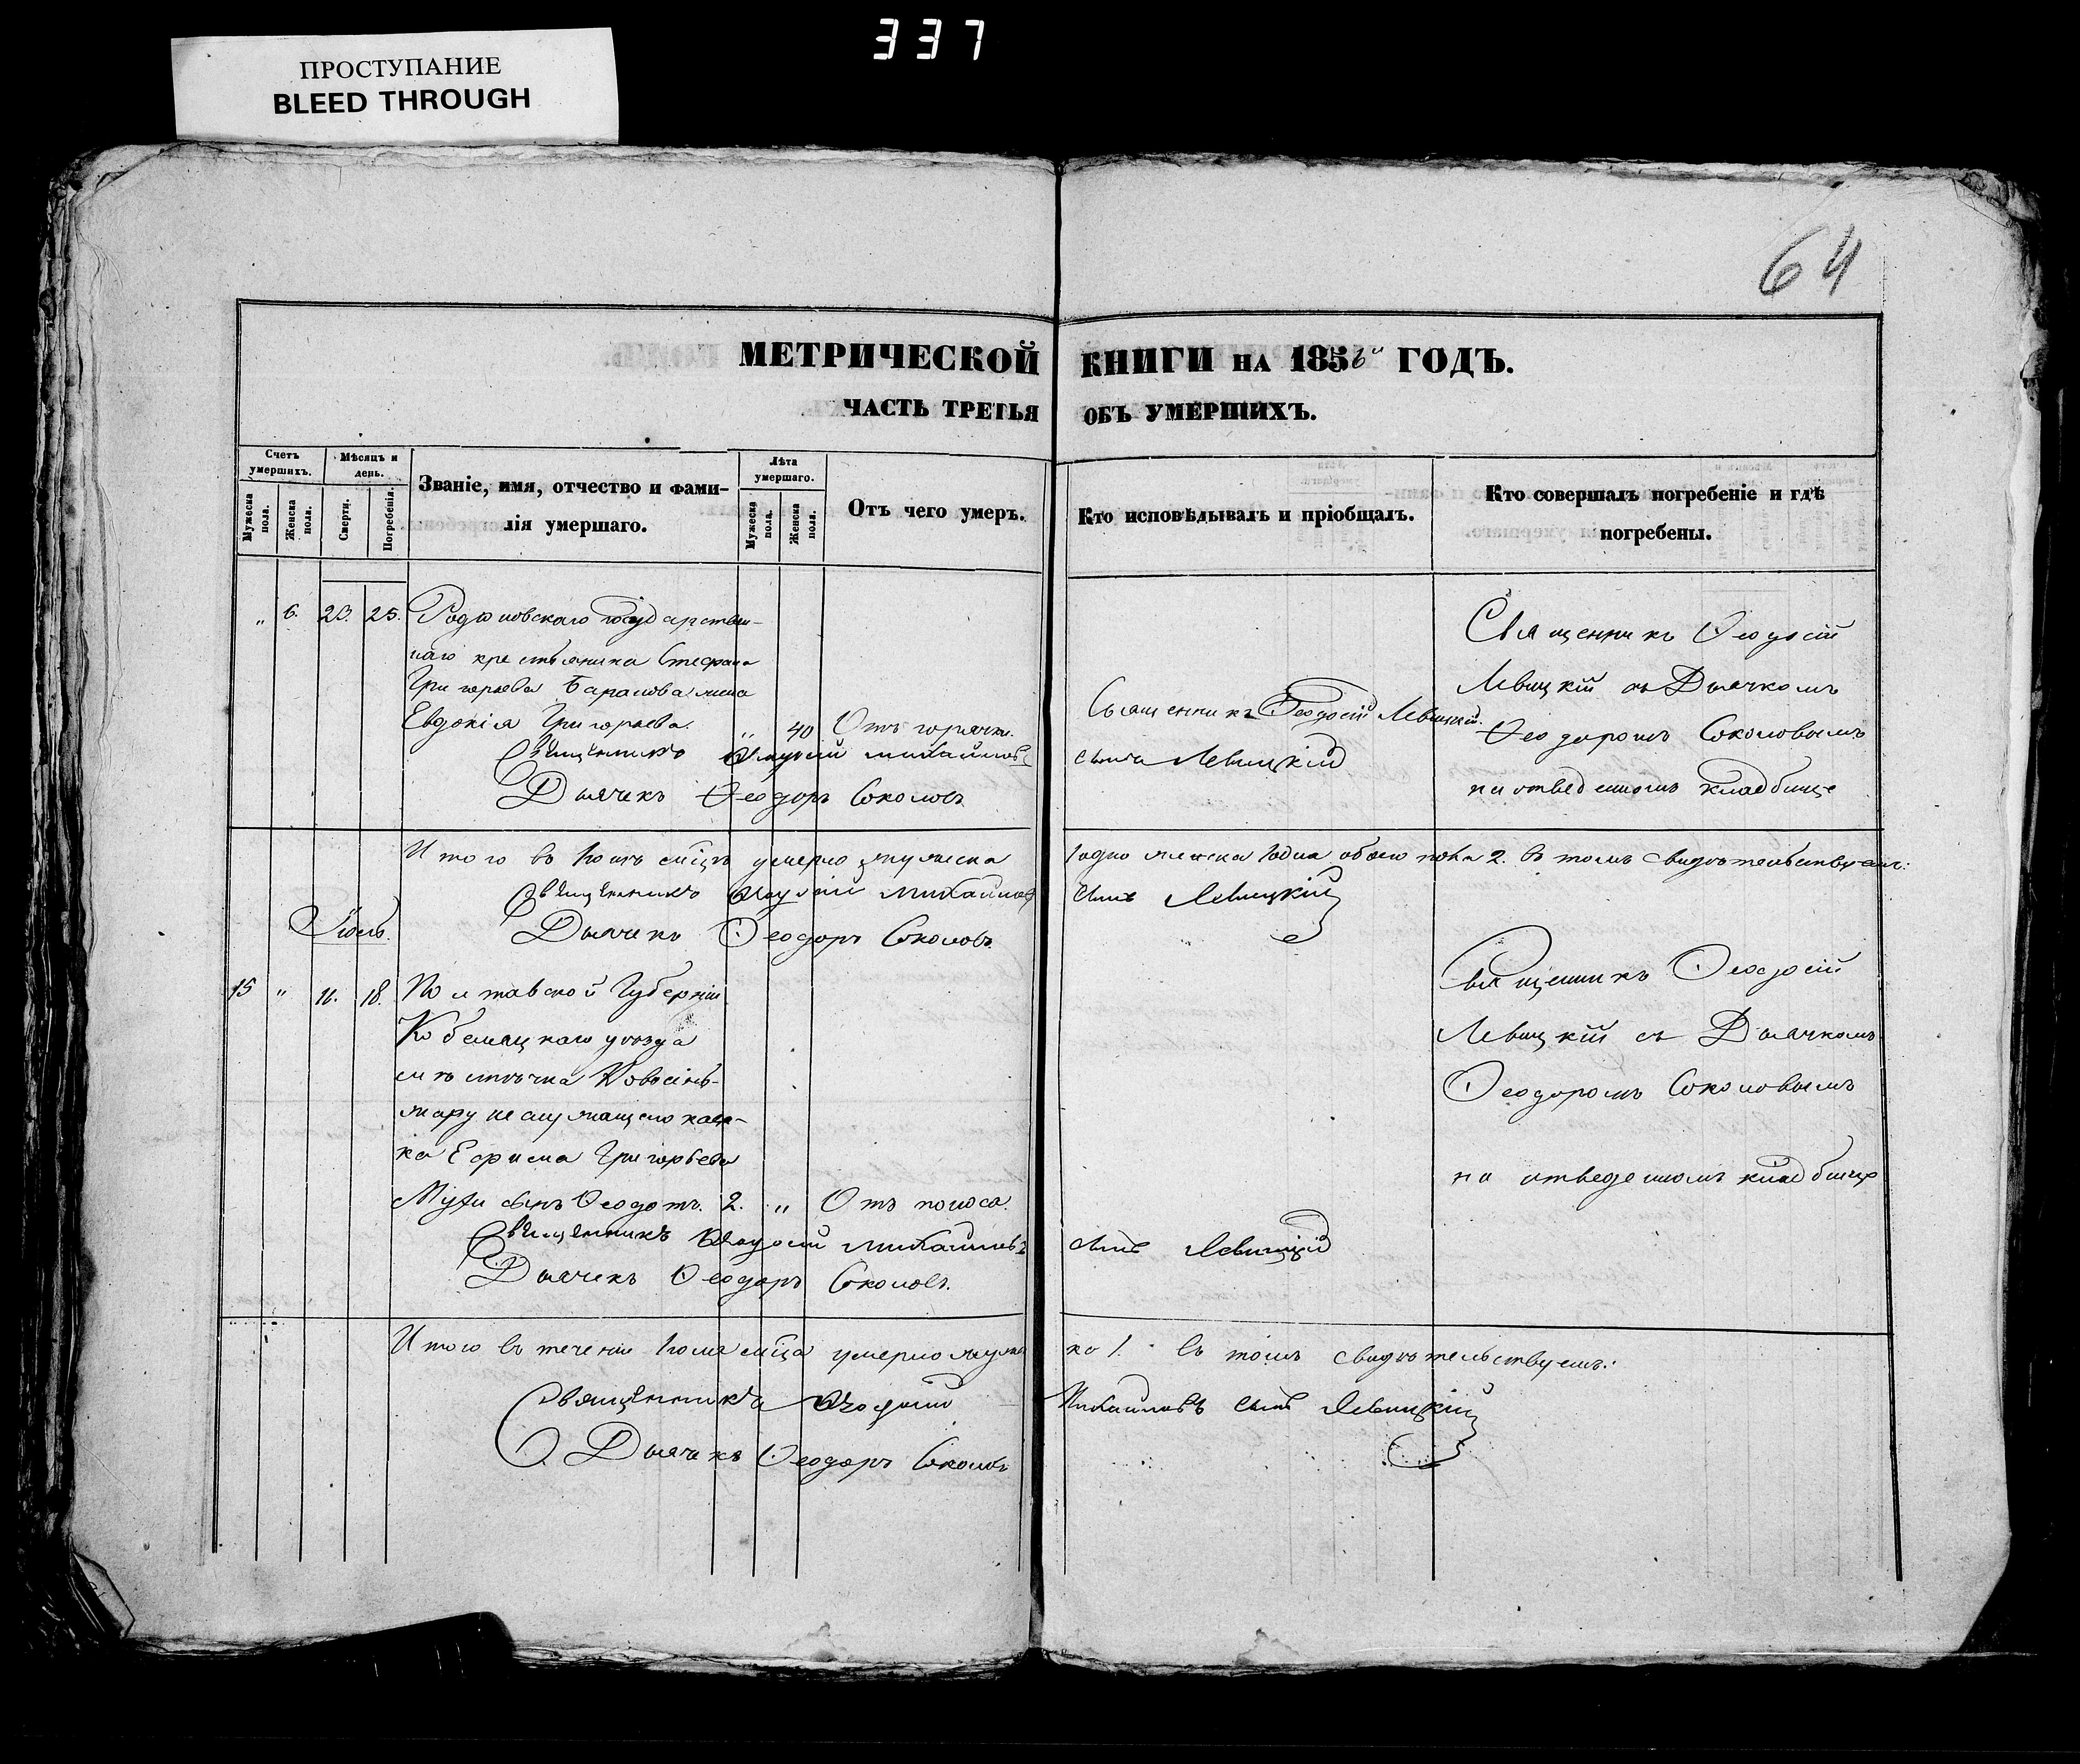 337
ПРОСТУПАНИЕ
BLEED THROUGH
64
МЕТРИЧЕСКОЙ КНИГИ НА 1856й ГОДЪ.
ЧАСТЬ ТРЕТЬЯ ОБЪ УМЕРШИХЪ.
Счетъ умершихъ.
Мужеска пола.
Женска пола.
Мѣсяцъ и день.
Смерти.
Погребенія.
Званіе, имя, отчество и фами-
лія умершаго.
Лѣта умершаго.
Мужеска пола.
Женска пола.
Отъ чего умеръ.
Кто исповѣдывалъ и пріобщалъ.
Кто совершалъ погребеніе и гдѣ
погребены.
„ 6. 23. 25. Родіоновскаго государствен-
наго крестьянина Стефана
Григорьева Баранова жена
Евдокія Григорьева. „ 40 Отъ горячки.
Священникъ Ѳеодосій Михайловъ
Дьячекъ Ѳеодоръ Соколовъ
Священникъ Ѳеодосій Левицкій.
сынъ Левицкій
Священникъ Ѳеодосій
Левицкій съ Дьячкомъ
Ѳеодоромъ Соколовымъ
на отведенномъ кладбище
Итого въ Іюнѣ мѣсяцѣ умерло мужеска 1 одно женска 1 одна обоего пола 2. въ томъ свидѣтельствуемъ:
Священникъ Ѳеодосій Михайловъ сынъ Левицкій
Дьячекъ Ѳеодоръ Соколовъ.
Іюль.
15 „ 16. 18. Полтавской Губерніи
Кобеляцкаго уѣзда
мѣстечка
неслужащего каза-
ка Ефима Григорьева
сынъ Ѳеодотъ. 2. „ Отъ поноса.
Священникъ Ѳеодосій Михайловъ сынъ Левицкій
Дьячекъ Ѳеодоръ Соколовъ.
Священникъ Ѳеодосій
Левицкій съ Дьячкомъ
Ѳеодоромъ Соколовымъ
на отведенномъ кладбище
Итого въ теченіи Іюля мѣсяца умерло мужес ка 1. въ томъ свидѣтельствуемъ:
Священникъ Ѳеодосій Михайловъ сынъ Левицкій
Дьячекъ Ѳеодоръ Соколовъ